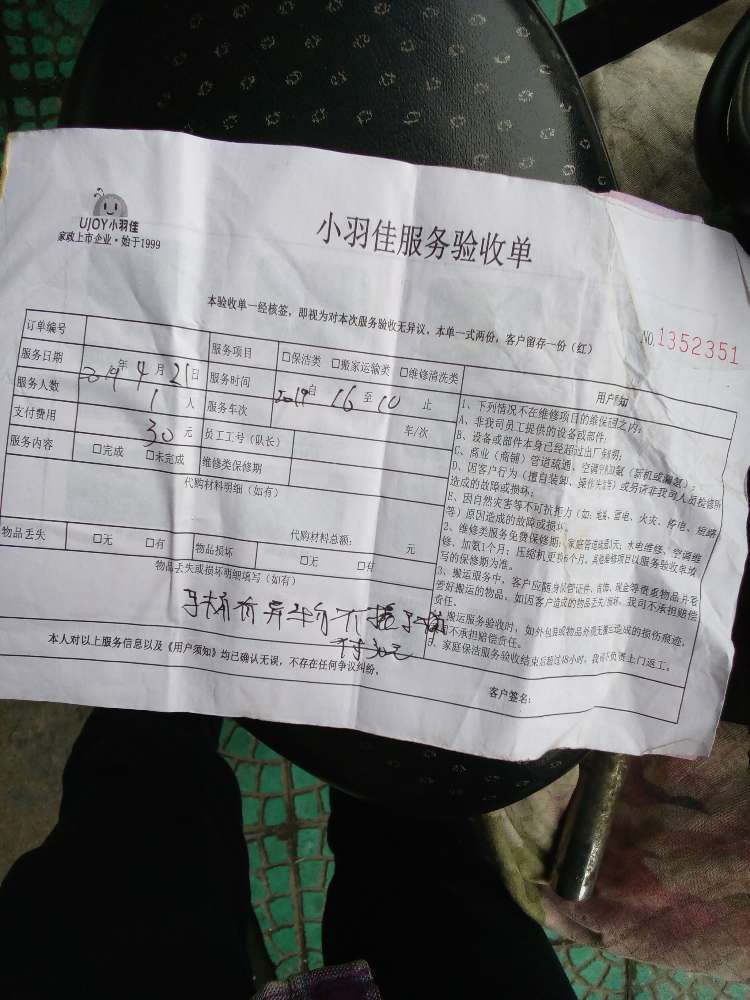 UJOY小羽佳
家政上市企业·始于1999
小羽佳服务验收单
本验收单一经核签，即视为对本次服务验收无异议，本单一式两份，客户留存一份（红）
NO.1352351
订单编号 服务项目 □保洁类 □搬家运输类 □维修清洗类
服务日期 2019年4月21日 服务时间 2019自16至10止
服务人数 1人 服务车次 车/次
支付费用 30元 员工工号（队长）
服务内容 □完成 □未完成 维修类保修期
代购材料明细（如有）
代购材料总额： 元
物品丢失 □无 □有 物品损坏 □无 □有
物品丢失或损坏明细填写（如有）
付30元
本人对以上服务信息以及《用户须知》均已确认无误，不存在任何争议纠纷。
客户签名：
用户须知
1、下列情况不在维修项目的维保范围之内：
A、非我司员工提供的设备或部件；
B、设备或部件本身已经超过出厂年限；
C、商业（商铺）管道疏通、空调
D、因客户行为（擅自装卸、操作 等）或另请非我司人员检修所
造成的故障或损坏；
E、因自然灾害等不可抗拒力（如：地震、雷电、火灾、停电、短路
等）原因造成的故障或损坏。
2、维修类服务免费保修期：家庭管道疏通 水电维修、空调维
修、加氨1个月；压缩机更换6个月。其他维修项目以服务验收单填
写的保修期为准。
3、搬运服务中，客户应随身保管证件、首饰、现金等贵重物品并它
管好搬运的物品。如因客户造成的物品丢失/损坏，我司不承担赔偿
责任。
搬运服务验收时，如外包装或物品外观无搬运造成的损伤痕迹，
司不承担赔偿责任。
家庭保洁服务验收结束后超过48小时，我司不负责上门返工。